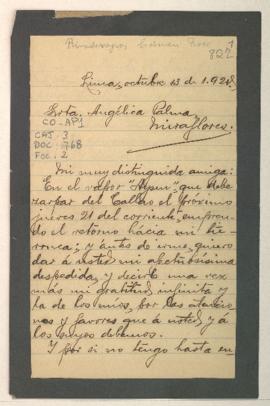 822
Lima, octubre 13 de 1.920.
Srta. Angélica Palma,
Miraflores.
CO-AP1
CAJ: 3
DOC: 768
FOL: 2
Mi muy distinguida amiga:
En el vapor que debe
zarpar del Callao el próximo
jueves 21 del corriente, empren-
do el retorno hacia mi tie-
rruca; y antes de irme, quiero
dar á usted mi afectuosísima
despedida, y decirle una vez
más mi gratitud infinita y
la de los míos, por las atencio-
nes y favores que á usted y á
los suyos debemos.
Y por si no tengo hasta en-